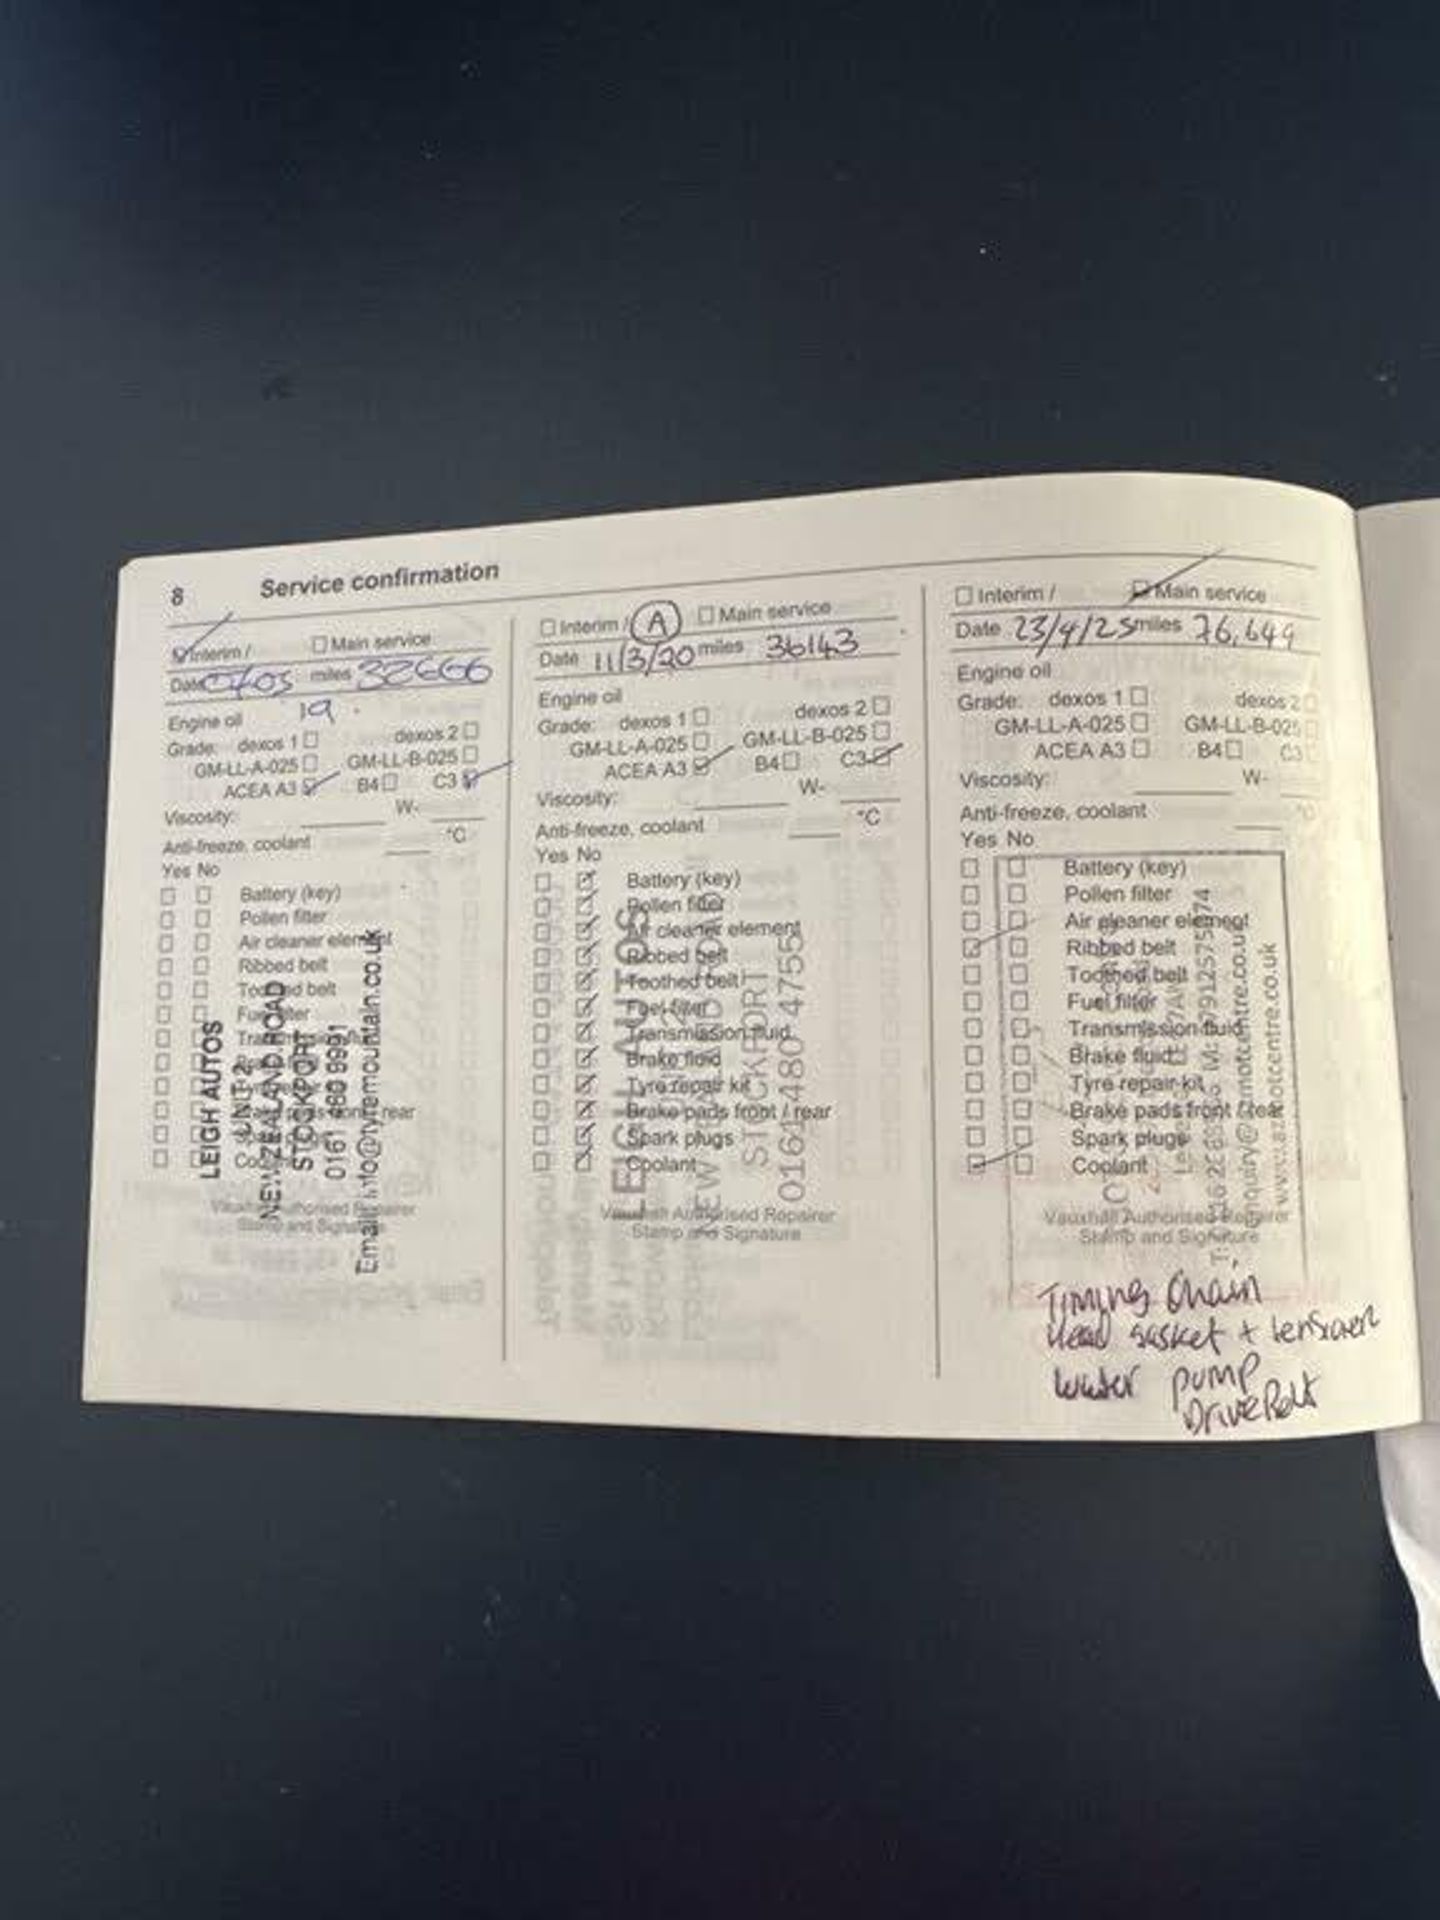 8 Service confirmation
Interim / Main service
miles 32666
19
Engine oil
Grade: dexos 1 dexos 2
GM-LL-A-025 GM-LL-B-025
ACEA A3 B4 C3
Viscosity: W-
Anti-freeze, coolant °C
Yes No
Battery (key)
Pollen filter
Air cleaner element
Ribbed belt
Toothed belt
LEIGH AUTOS
UNIT 2
NEW ZEALAND ROAD
STOCKPORT
0161 480 9991
Email: info@tyremountain.co.uk
Stamp and Signature
Interim / A Main service
Date 11/3/20 miles 36143
Engine oil
Grade: dexos 1 dexos 2
GM-LL-A-025 GM-LL-B-025
ACEA A3 B4 C3
Viscosity: W-
Anti-freeze, coolant °C
Yes No
Battery (key)
Pollen filter
Air cleaner element
Ribbed belt
Toothed belt
Fuel filter
Transmission fluid
Brake fluid
Tyre repair kit
Brake pads front / rear
Spark plugs
Coolant
LEIGH AUTOS
STOCKPORT
0161 480 4755
Vauxhall Authorised Repairer
Stamp and Signature
Interim / Main service
Date 23/4/25 miles 76,649
Engine oil
Grade: dexos 1 dexos 2
GM-LL-A-025 GM-LL-B-025
ACEA A3 B4 C3
Viscosity: W-
Anti-freeze, coolant °C
Yes No
Battery (key)
Pollen filter
Air cleaner element
Ribbed belt
Toothed belt
Fuel filter
Transmission fluid
Brake fluid
Tyre repair kit
Brake pads front / rear
Spark plugs
Coolant
Vauxhall Authorised Repairer
Stamp and Signature
Timing Chain
Head gasket +
water pump
Drive Belt